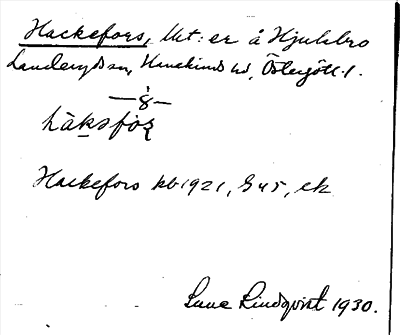 Hackefors, Ut: er å Hjulsbro
Landeryds sn, Hanekinds hd, Östergötl. l.
håksfòʂ
Hackefors kb 1921, G45, ek
Sune Lindqvist 1930.